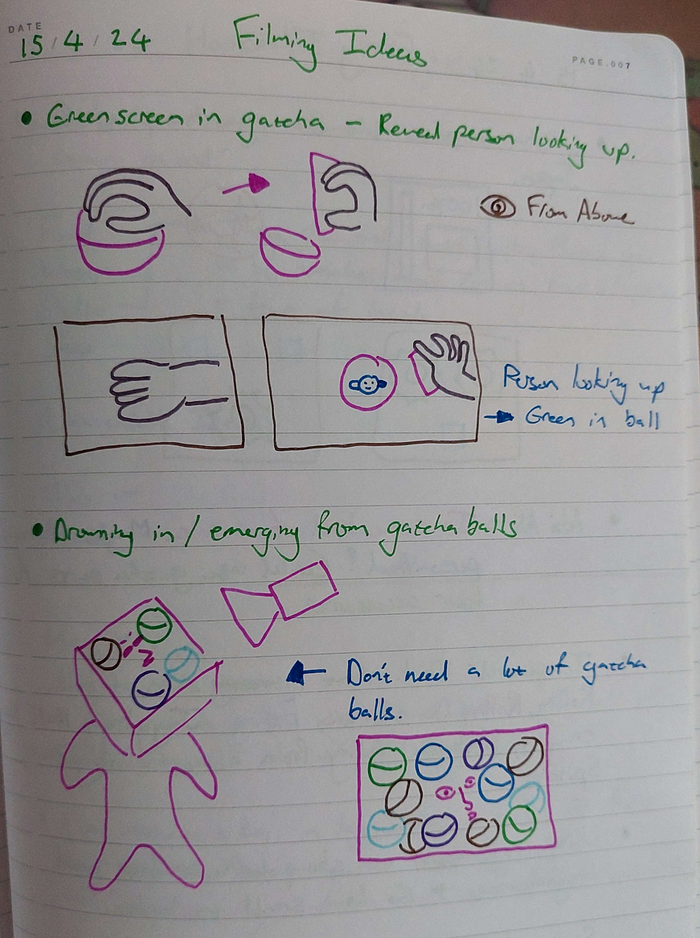 DATE
15/4/24
Filming Ideas
PAGE.007
• Greenscreen in gatcha – Reveal person looking up.
From Above
Person looking up
→ Green in ball
• Drowning in / emerging from gatcha balls
← Don't need a lot of gatcha
balls.